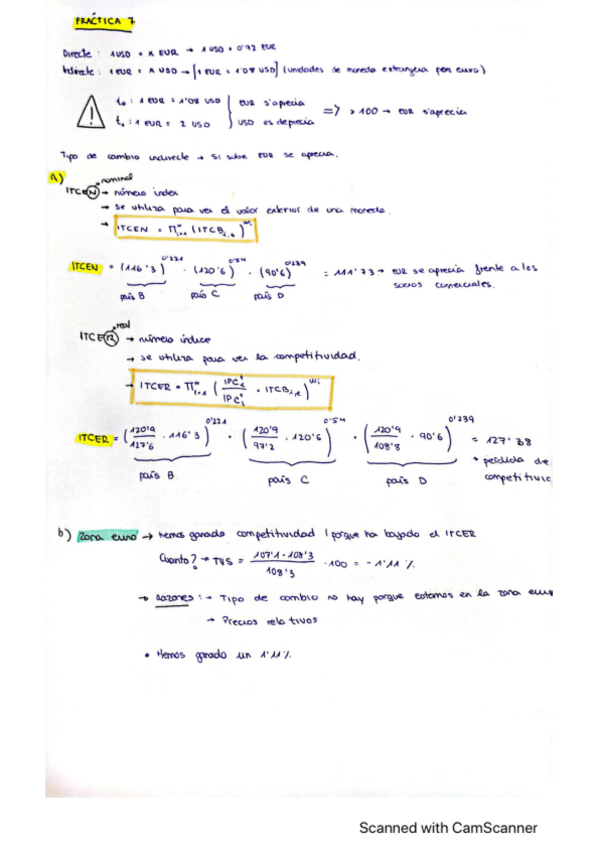 PRÁCTICA 7
Directe: 1 USD = x EUR → 1 USD = 0'92 EUR
Indirecte: 1 EUR = x USD → [1 EUR = 1'08 USD] (unidades de moneda extranjera por euro)
t₀ : 1 EUR = 1'08 USD } EUR s'aprecia
t₁ : 1 EUR = 2 USD } USD es deprecia ⇒ > 100 → EUR s'aprecia
Tipo de cambio indirecte → Si sube EUR se aprecia.
a)
nominal
ITCEN → número index
→ se utiliza para ver el valor exterior de una moneda.
→ ITCEN = Π (ITCB)^wi
ITCEN = (116'3)^0'221 · (120'6)^0'54 · (90'6)^0'239 = 111'73 → EUR se aprecia frente a los
país B país C país D socios comerciales.
real
ITCER → número índice
→ se utiliza para ver la competitividad.
→ ITCER = Π (IPC / IPC · ITCB)^wi
ITCER = (120'9/127'6 · 116'3)^0'221 · (120'9/97'2 · 120'6)^0'54 · (120'9/108'8 · 90'6)^0'239 = 127'38
país B país C país D
• pérdida de
b) Zona euro → hemos ganado competitividad (porque ha bajado el ITCER
Cuanto? → TVS = 107'1 - 108'3 / 108'3 · 100 = - 1'11 %
→ Razones: → Tipo de cambio no hay porque estamos en la zona
→ Precios relativos
• Hemos ganado un 1'11%
Scanned with CamScanner